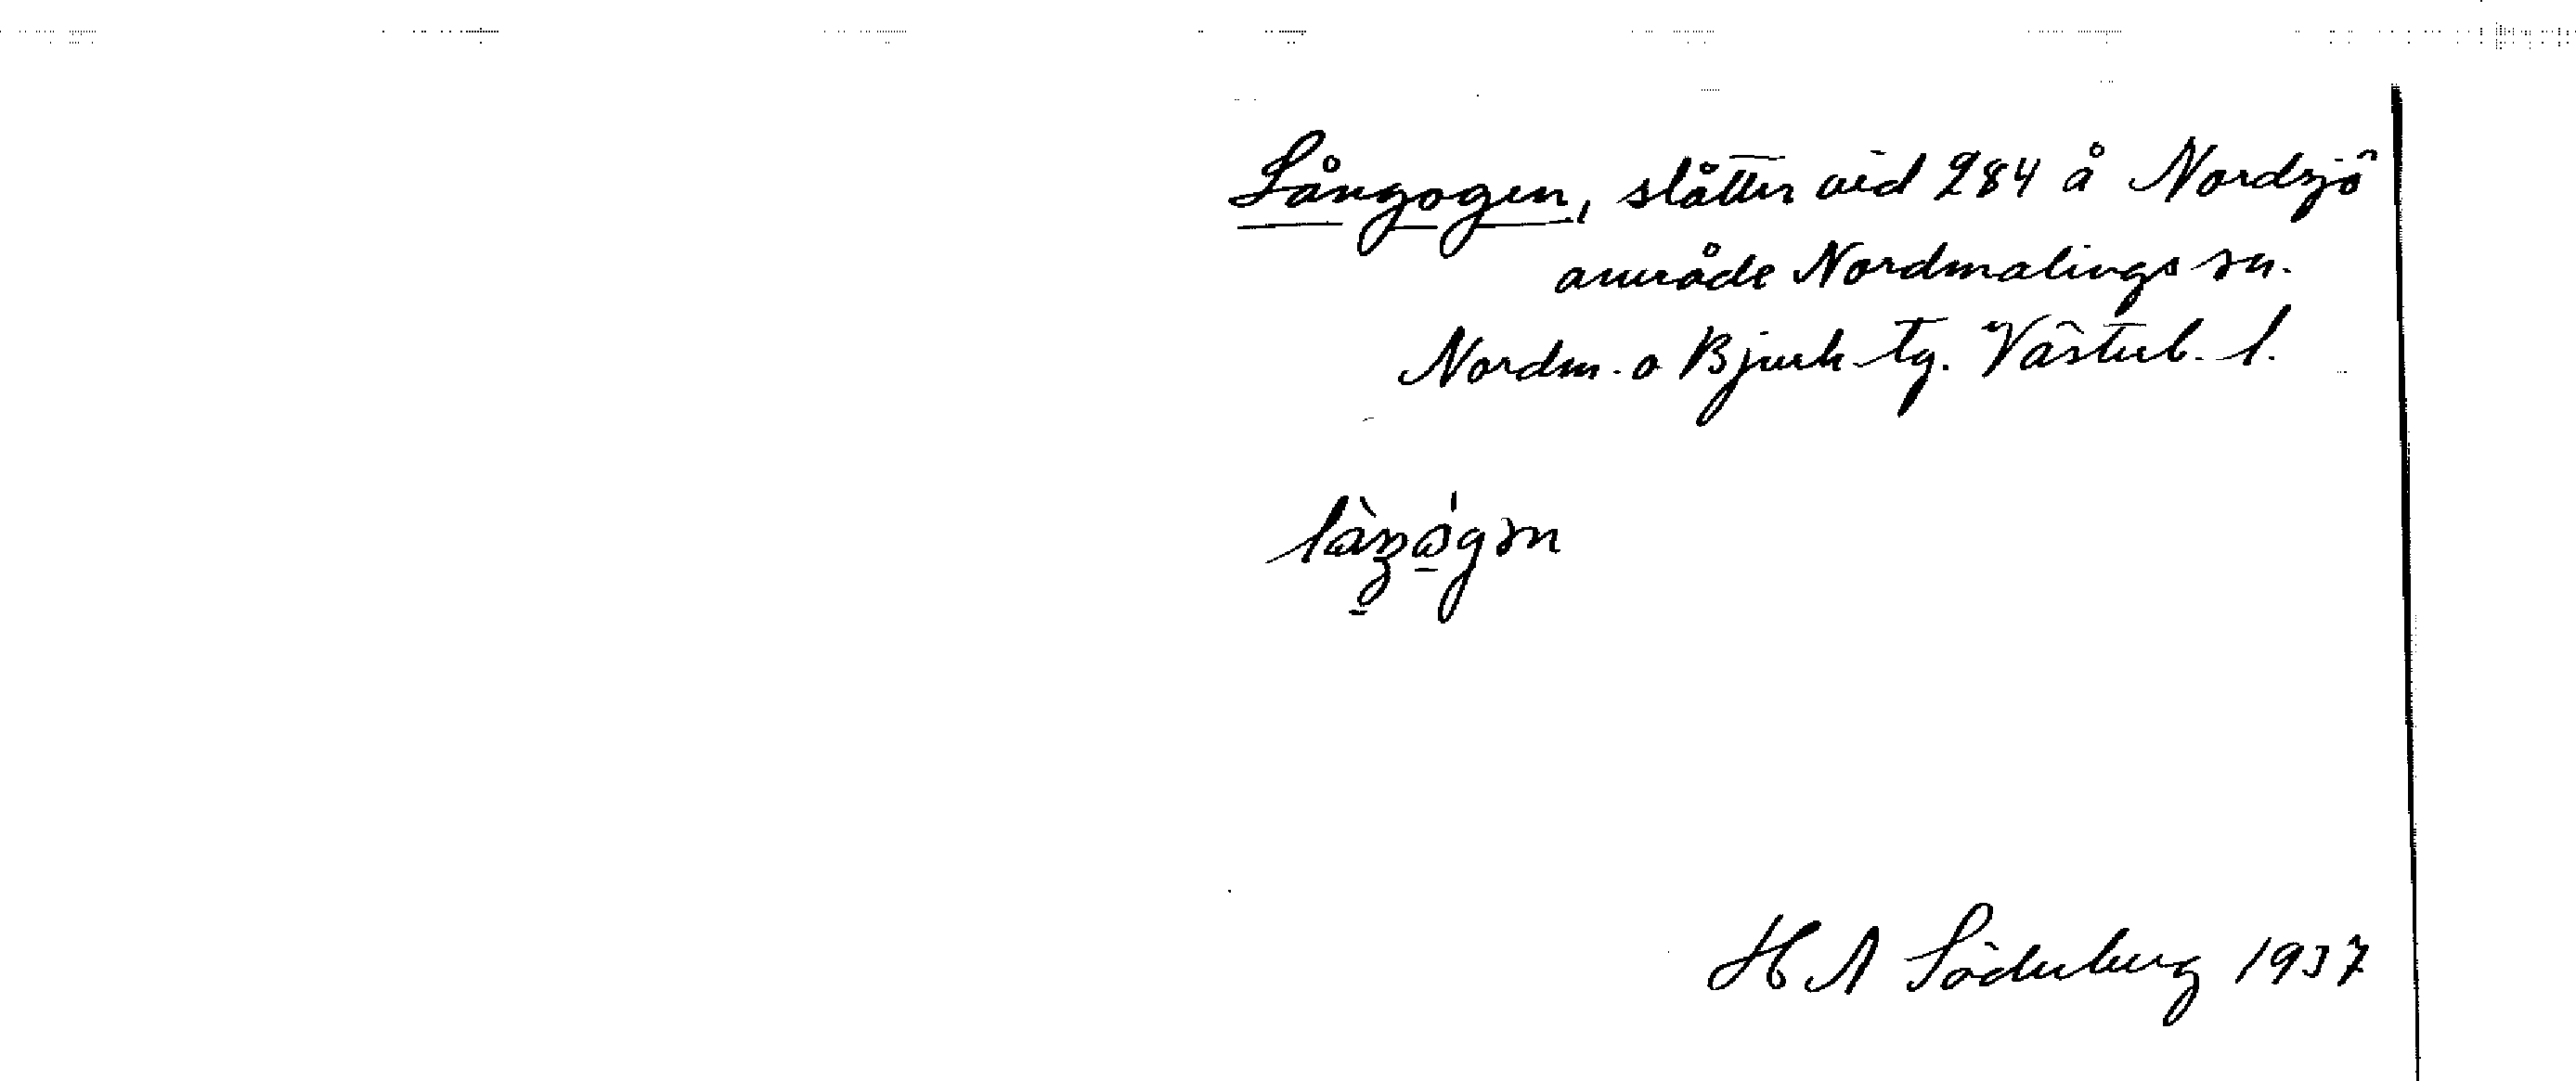 Långogen, slåtter vid 284 å Nordsjö
område Nordmalings sn.
Nordm. o Bjurh. tg. Västerb. l.
H A Söderberg 1937